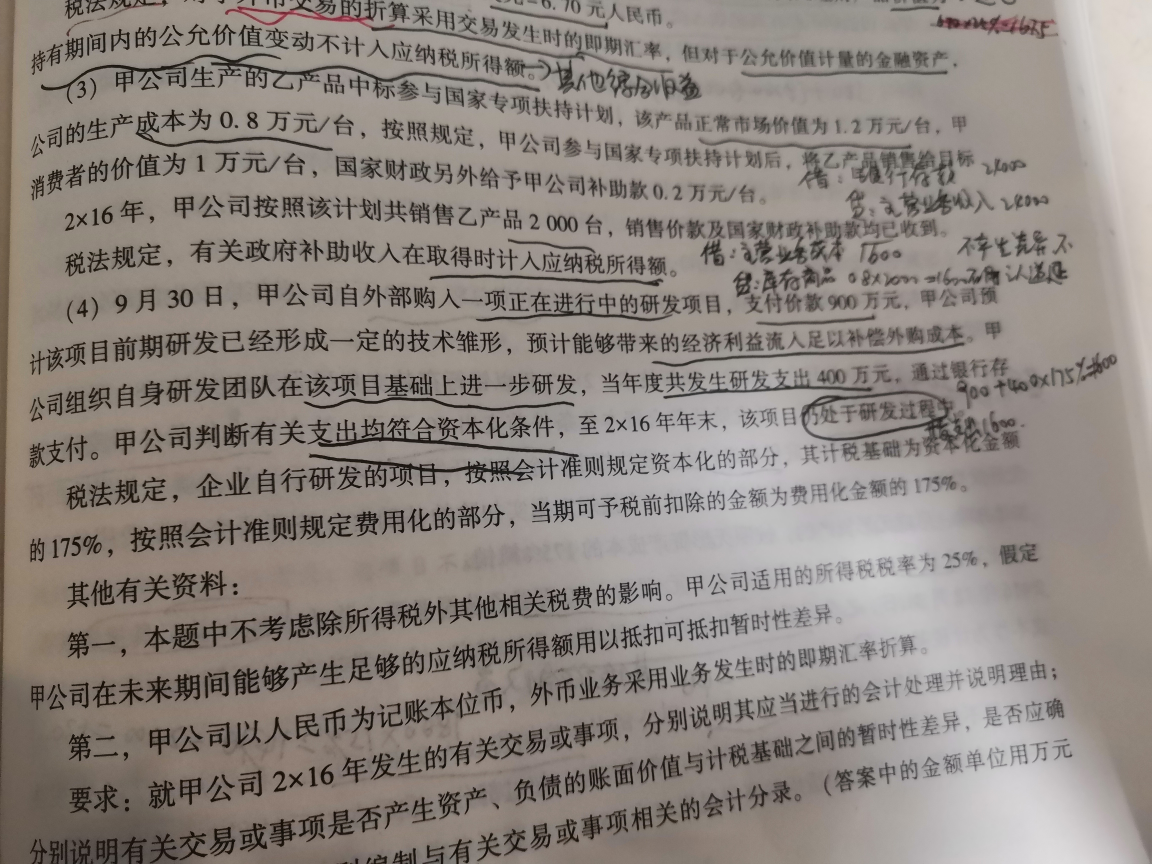 元=6.70元人民币。
税法规定，对于外币交易的折算采用交易发生时的即期汇率，但对于公允价值计量的金融资产，
持有期间内的公允价值变动不计入应纳税所得额。→其他综合收益
(3) 甲公司生产的乙产品中标参与国家专项扶持计划，该产品正常市场价值为1.2万元/台，甲
公司的生产成本为0.8万元/台，按照规定，甲公司参与国家专项扶持计划后，将乙产品销售给目标
消费者的价值为1万元/台，国家财政另外给予甲公司补助款0.2万元/台。
借：银行存款 2400
贷：主营业务收入 2400
2×16年，甲公司按照该计划共销售乙产品2 000台，销售价款及国家财政补助款均已收到。
税法规定，有关政府补助收入在取得时计入应纳税所得额。
借：主营业务成本 1600
贷：库存商品 0.8×2000=1600
不产生差异 不
确认递延
(4) 9月30日，甲公司自外部购入一项正在进行中的研发项目，支付价款900万元，甲公司预
计该项目前期研发已经形成一定的技术雏形，预计能够带来的经济利益流入足以补偿外购成本。甲
公司组织自身研发团队在该项目基础上进一步研发，当年度共发生研发支出400万元，通过银行存
款支付。甲公司判断有关支出均符合资本化条件，至2×16年年末，该项目仍处于研发过程中。
900+400×175%=1600
税法规定，企业自行研发的项目，按照会计准则规定资本化的部分，其计税基础为资本化金额
的175%，按照会计准则规定费用化的部分，当期可予税前扣除的金额为费用化金额的175%。
其他有关资料：
第一，本题中不考虑除所得税外其他相关税费的影响。甲公司适用的所得税税率为25%，假定
甲公司在未来期间能够产生足够的应纳税所得额用以抵扣可抵扣暂时性差异。
第二，甲公司以人民币为记账本位币，外币业务采用业务发生时的即期汇率折算。
要求：就甲公司2×16年发生的有关交易或事项，分别说明其应当进行的会计处理并说明理由；
分别说明有关交易或事项是否产生资产、负债的账面价值与计税基础之间的暂时性差异，是否应确
编制与有关交易或事项相关的会计分录。（答案中的金额单位用万元